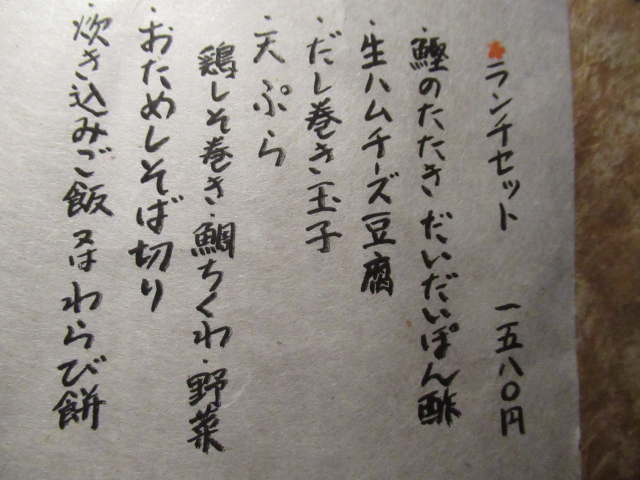 ランチセット 一五八〇円
・鰹のたたき だいだいぽん酢
・生ハムチーズ豆腐
・だし巻き玉子
・天ぷら
鶏しそ巻き・鯛ちくわ・野菜
・おためしそば切り
・炊き込みご飯 又は わらび餅